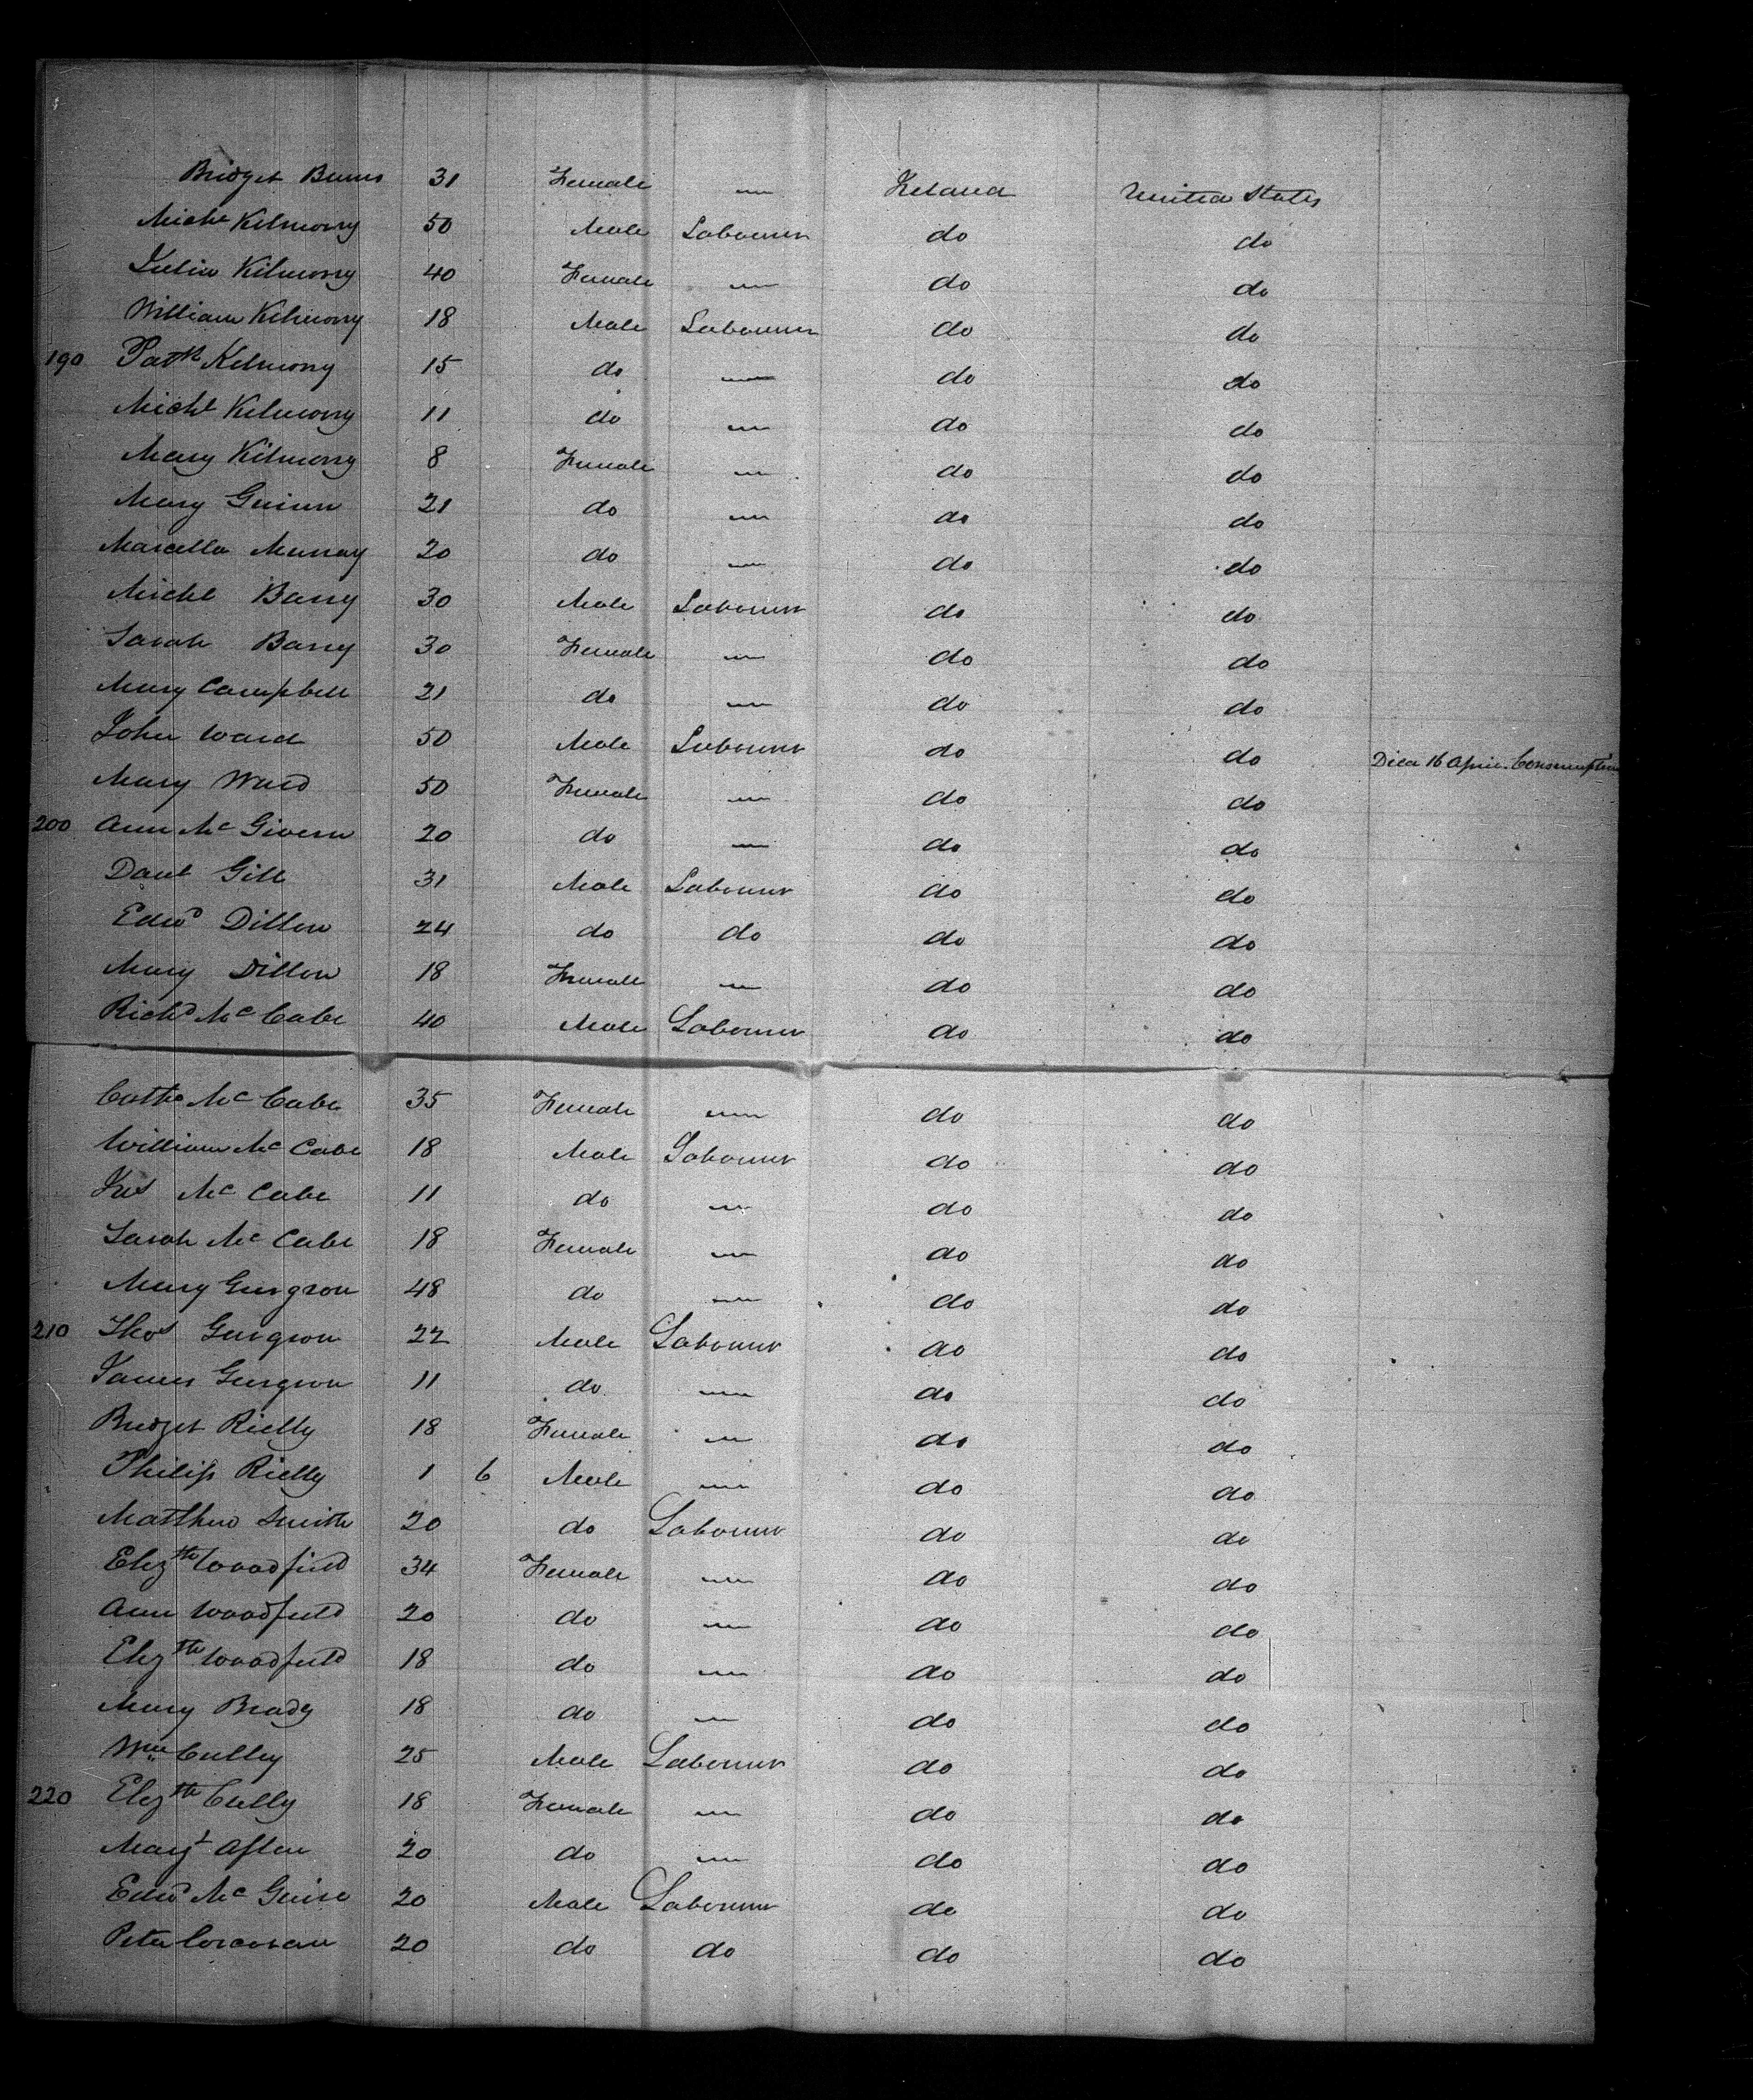 Bridget Burns 31 Female — Ireland United States
Michl Kilmorry 50 Male Labourer do do
Julia Kilmorry 40 Female — do do
William Kilmorry 18 Male Labourer do do
190 Patk Kilmorry 15 do — do do
Michl Kilmorry 11 do — do do
Mary Kilmorry 8 Female — do do
Mary Guinn 21 do — do do
Marcella Murray 20 do — do do
Michl Barry 30 Male Labourer do do
Sarah Barry 30 Female — do do
Mary Campbell 21 do — do do
John Ward 50 Male Labourer do do Died 16 April Consumption
Mary Ward 50 Female — do do
200 Ann McGivern 20 do — do do
Danl Gill 31 Male Labourer do do
Edwd Dillon 24 do do do do
Mary Dillon 18 Female — do do
Richd McCabe 40 Male Labourer do do
Cathe McCabe 35 Female — do do
William McCabe 18 Male Labourer do do
Jas McCabe 11 do — do do
Sarah McCabe 18 Female — do do
Mary Gurgson 48 do — do do
210 Thos Gurgson 22 Male Labourer do do
James Gurgson 11 do — do do
Bridget Rielly 18 Female — do do
Philip Rielly 1 6 Male — do do
Matthew Smith 20 do Labourer do do
Elizth Woodfield 34 Female — do do
Ann Woodfield 20 do — do do
Elizth Woodfield 18 do — do do
Mary Brady 18 do — do do
Wm Cully 25 Male Labourer do do
220 Elizth Cully 18 Female — do do
Margt 20 do — do do
Edwd McGuire 20 Male Labourer do do
Peter Corcoran 20 do do do do